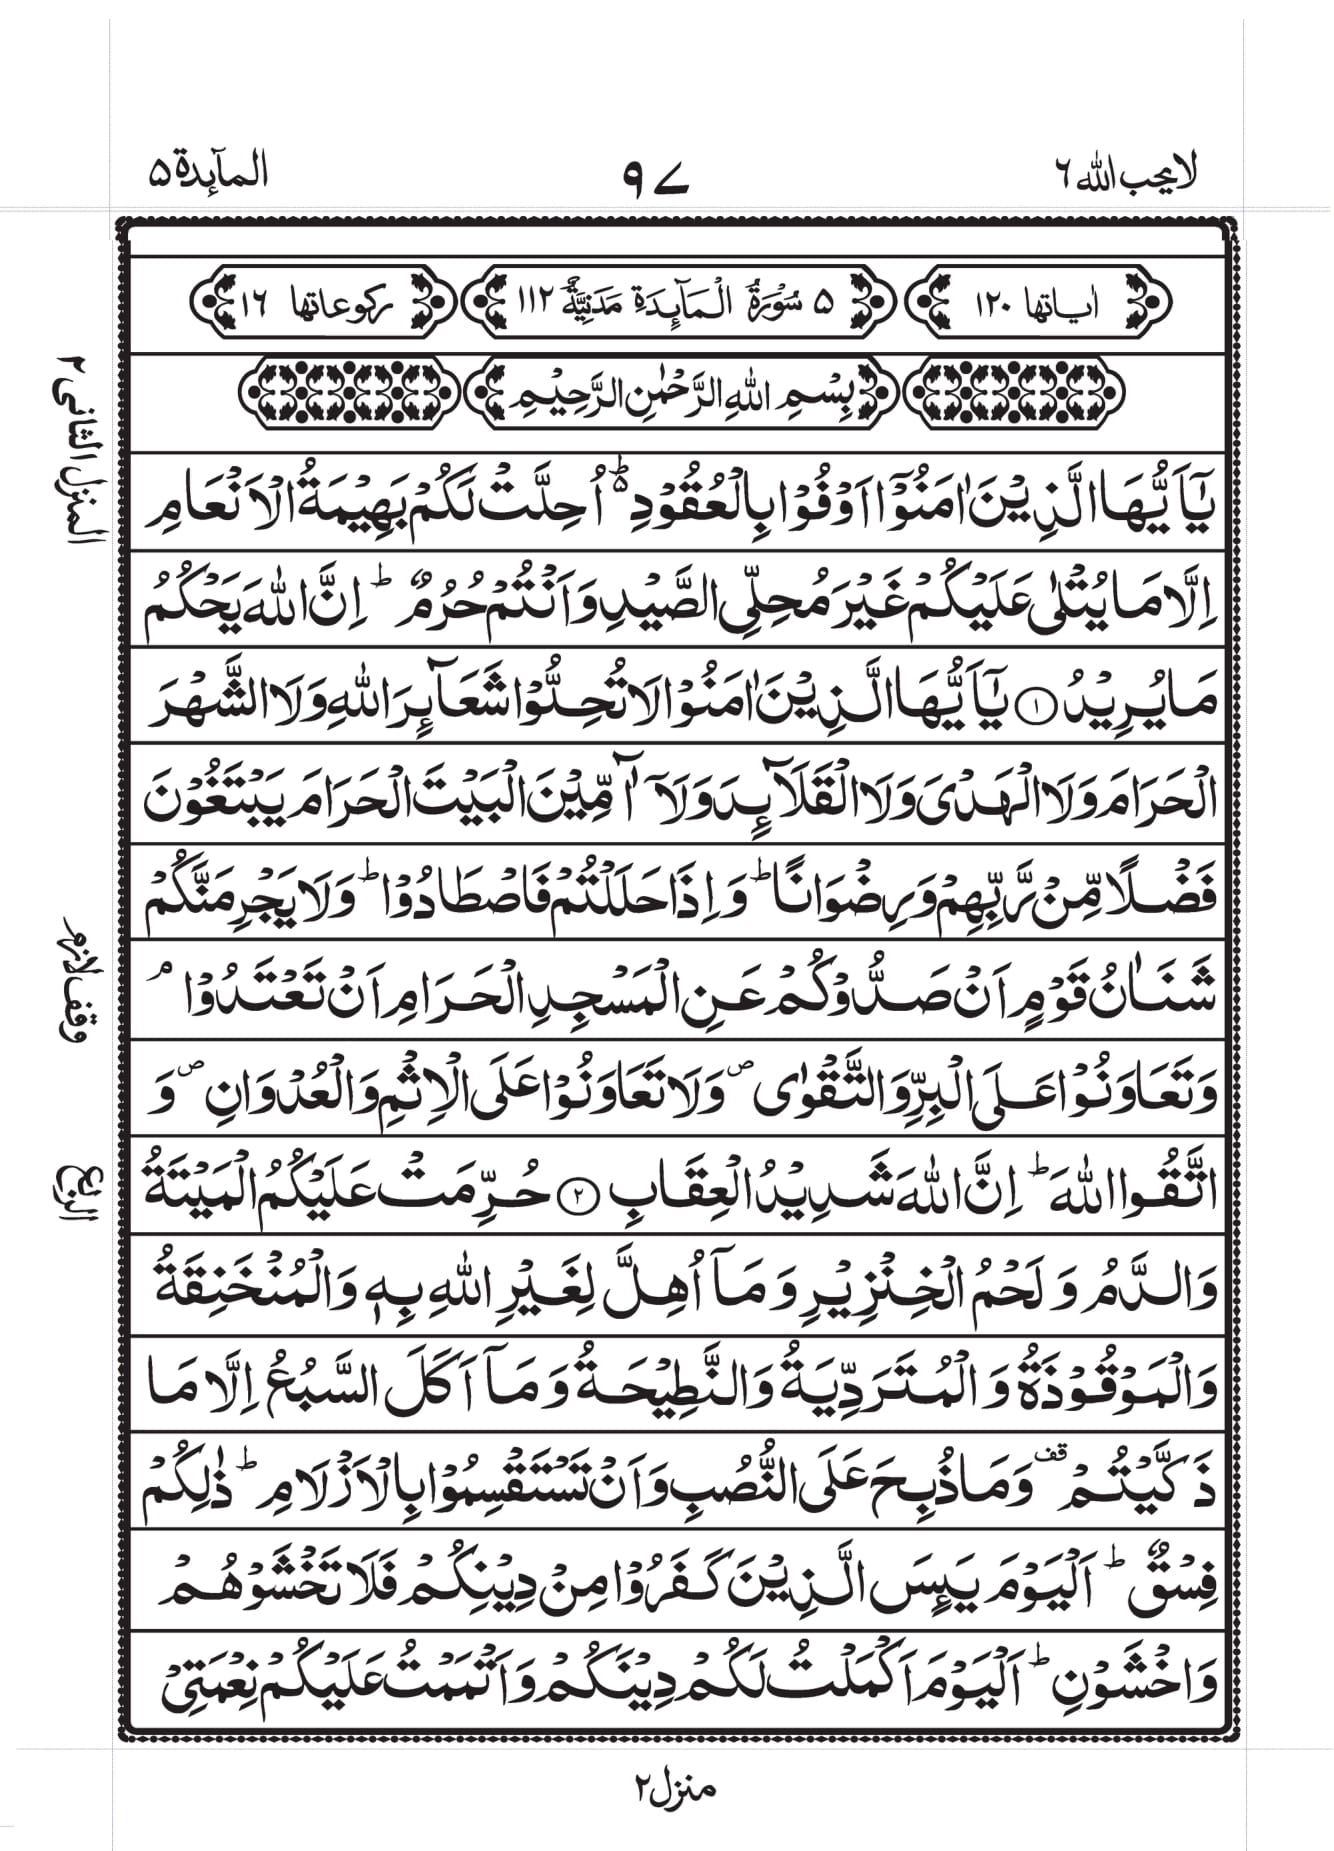 لا یحب الله ٦
٩٧
المآىِٕدة ۵
اٰیاتها ١٢٠
۵ سُوْرَةُ الْمَآىِٕدَةِ مَدَنِیَّةٌ ١١٢
رکوعاتها ١٦
بِسْمِ اللهِ الرَّحْمٰنِ الرَّحِیْمِ
یٰۤاَیُّهَا الَّذِیْنَ اٰمَنُوْۤا اَوْفُوْا بِالْعُقُوْدِ ؕ۵ اُحِلَّتْ لَكُمْ بَهِیْمَةُ الْاَنْعَامِ
اِلَّا مَا یُتْلٰی عَلَیْكُمْ غَیْرَ مُحِلِّی الصَّیْدِ وَاَنْتُمْ حُرُمٌ ؕ اِنَّ اللهَ یَحْكُمُ
مَا یُرِیْدُ ① یٰۤاَیُّهَا الَّذِیْنَ اٰمَنُوْا لَا تُحِلُّوْا شَعَآىِٕرَ اللهِ وَلَا الشَّهْرَ
الْحَرَامَ وَلَا الْهَدْیَ وَلَا الْقَلَآىِٕدَ وَلَاۤ اٰۤمِّیْنَ الْبَیْتَ الْحَرَامَ یَبْتَغُوْنَ
فَضْلًا مِّنْ رَّبِّهِمْ وَرِضْوَانًا ؕ وَاِذَا حَلَلْتُمْ فَاصْطَادُوْا ؕ وَلَا یَجْرِمَنَّكُمْ
شَنَاٰنُ قَوْمٍ اَنْ صَدُّوْكُمْ عَنِ الْمَسْجِدِ الْحَرَامِ اَنْ تَعْتَدُوْا ۘ
وَتَعَاوَنُوْا عَلَی الْبِرِّ وَالتَّقْوٰی ۪ وَلَا تَعَاوَنُوْا عَلَی الْاِثْمِ وَالْعُدْوَانِ ۪ وَ
اتَّقُوا اللهَ ؕ اِنَّ اللهَ شَدِیْدُ الْعِقَابِ ② حُرِّمَتْ عَلَیْكُمُ الْمَیْتَةُ
وَالدَّمُ وَلَحْمُ الْخِنْزِیْرِ وَمَاۤ اُهِلَّ لِغَیْرِ اللهِ بِهٖ وَالْمُنْخَنِقَةُ
وَالْمَوْقُوْذَةُ وَالْمُتَرَدِّیَةُ وَالنَّطِیْحَةُ وَمَاۤ اَكَلَ السَّبُعُ اِلَّا مَا
ذَكَّیْتُمْ قف وَمَا ذُبِحَ عَلَی النُّصُبِ وَاَنْ تَسْتَقْسِمُوْا بِالْاَزْلَامِ ؕ ذٰلِكُمْ
فِسْقٌ ؕ اَلْیَوْمَ یَىِٕسَ الَّذِیْنَ كَفَرُوْا مِنْ دِیْنِكُمْ فَلَا تَخْشَوْهُمْ
وَاخْشَوْنِ ؕ اَلْیَوْمَ اَكْمَلْتُ لَكُمْ دِیْنَكُمْ وَاَتْمَمْتُ عَلَیْكُمْ نِعْمَتِیْ
المنزل الثانی ٢
وقف لازم
الربع
منزل ٢